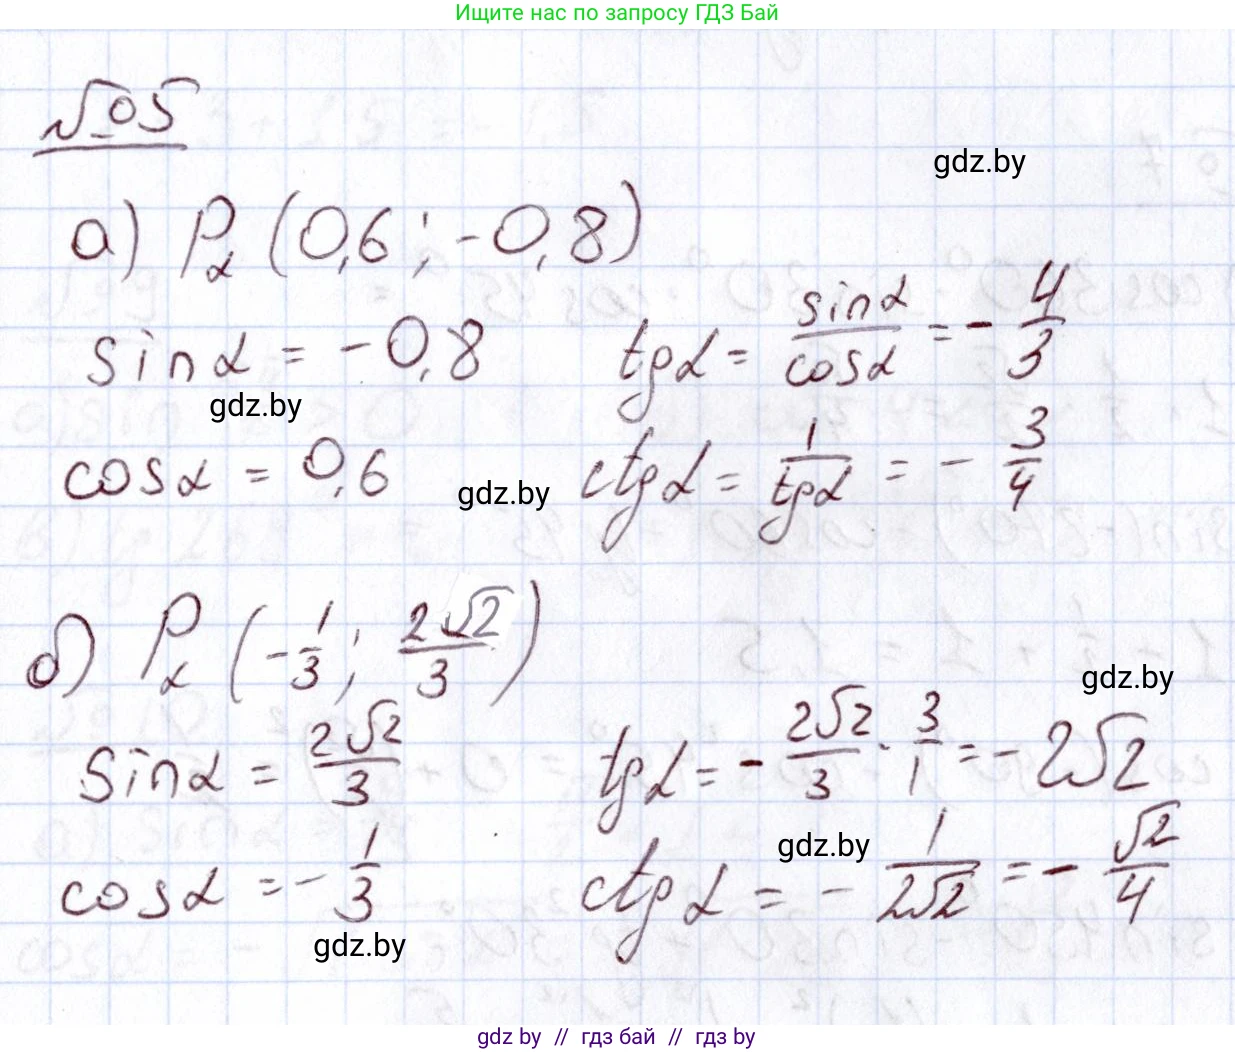 Ищите нас по запросу ГДЗ Бай
№05
gdz.by
а) Pα (0,6; -0,8)
sinα = -0,8
tgα = sinα/cosα = - 4/3
gdz.by
cosα = 0,6
gdz.by
ctgα = 1/tgα = - 3/4
б) Pα (-1/3; 2√2/3)
gdz.by
sinα = 2√2/3
tgα = - 2√2/3 · 3/1 = -2√2
gdz.by
cosα = - 1/3
ctgα = - 1/2√2 = - √2/4
gdz.by
gdz by // гдз бай // гдз by